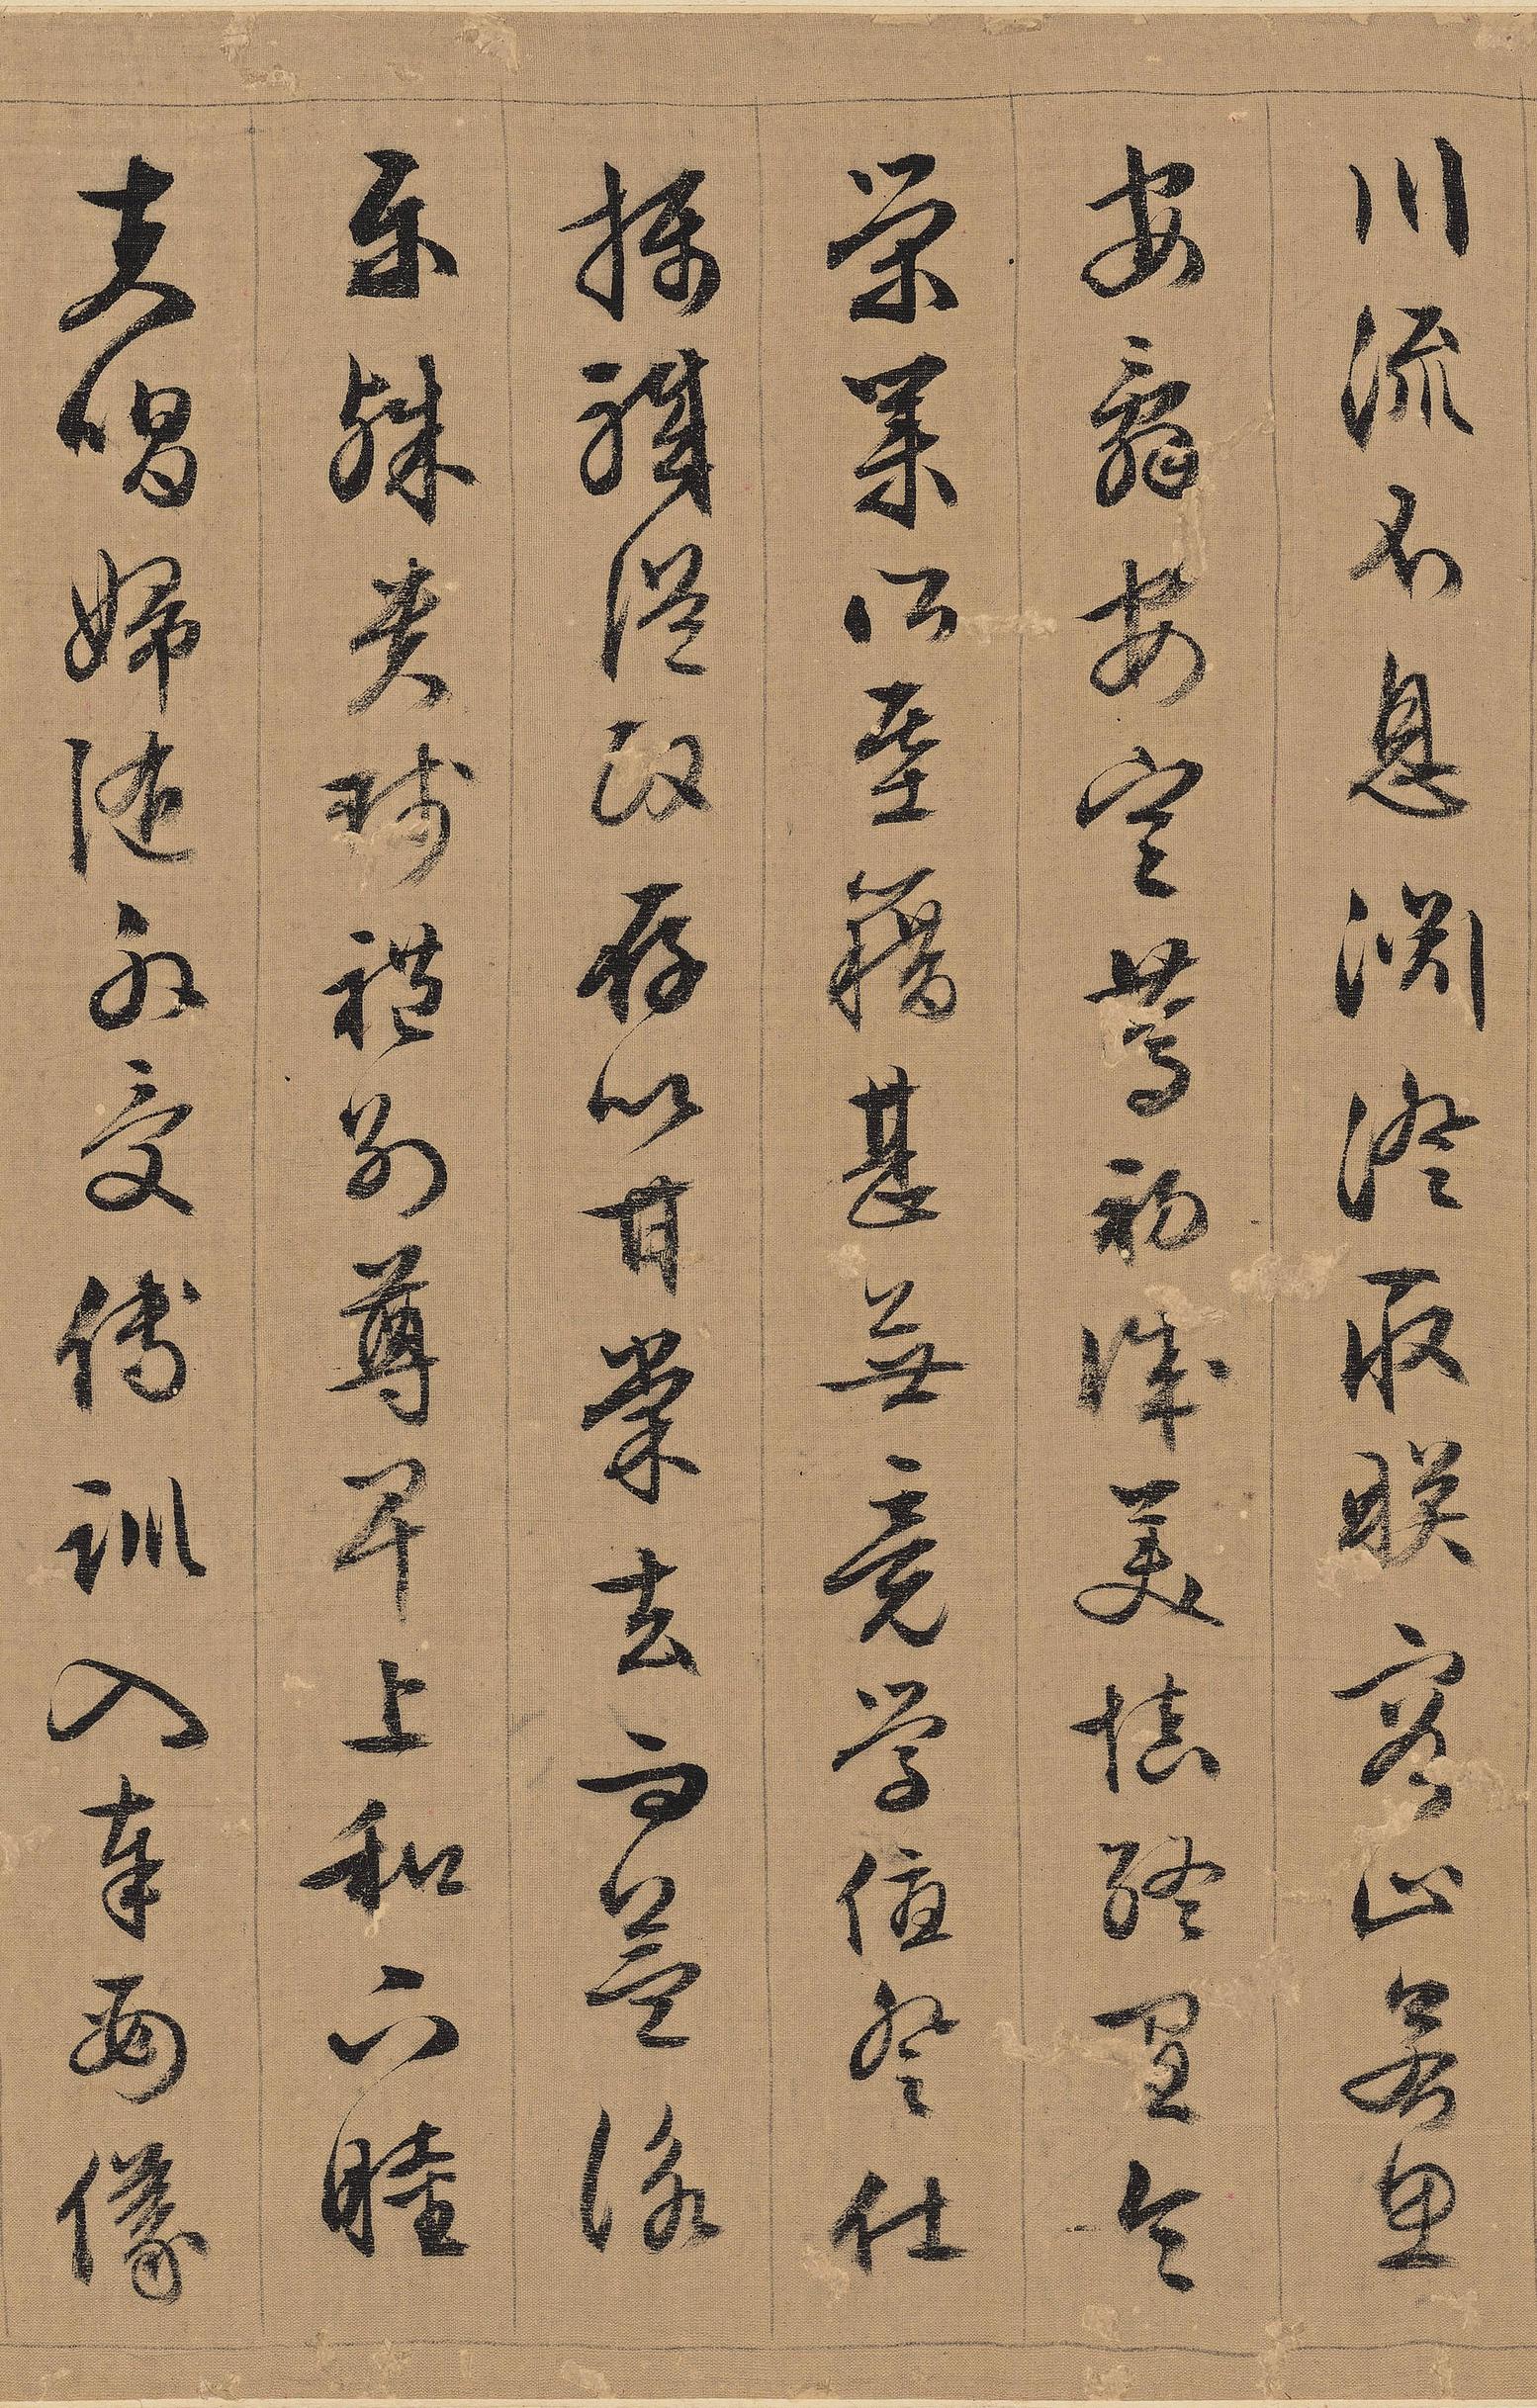 川流不息渊澄取暎容止若思
安辭安定篤初誠美慎終宜令
榮業所基籍甚無竟學優登仕
攝職從政存以甘棠去而益詠
樂殊貴賤禮別尊卑上和下睦
夫唱婦隨外受傅訓入奉母儀